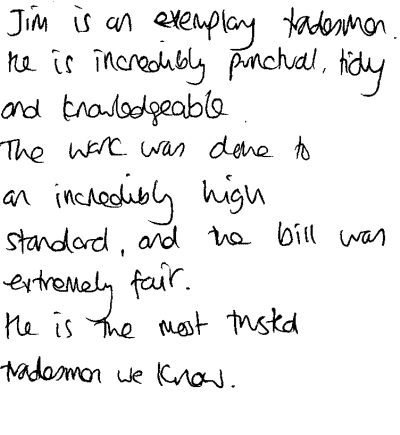 Jim is an exemplary tradesman.
He is incredibly punctual, tidy
and knowledgeable.
The work was done to
an incredibly high
standard, and the bill was
extremely fair.
He is the most trusted
tradesman we know.